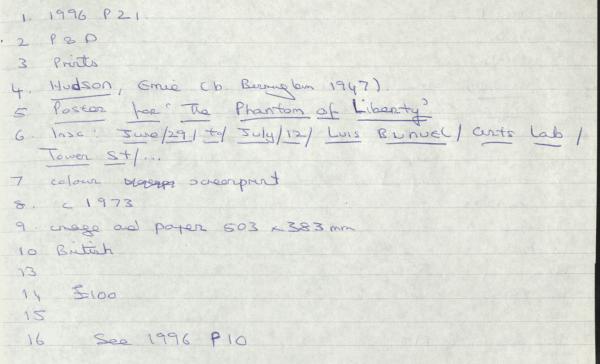 1. 1996 P21.
2 P & D
3 Prints
4. Hudson, Ernie (b. Birmingham 1947)
5 Poster for 'The Phantom of Liberty'
6. Insc: June/29/to/July/12/ Luis Bunuel/ Arts Lab /
Tower St/...
7 colour screenprint
8. c 1973
9. image and paper 503 x 383 mm
10 British
13
14 £100
15
16 See 1996 P10